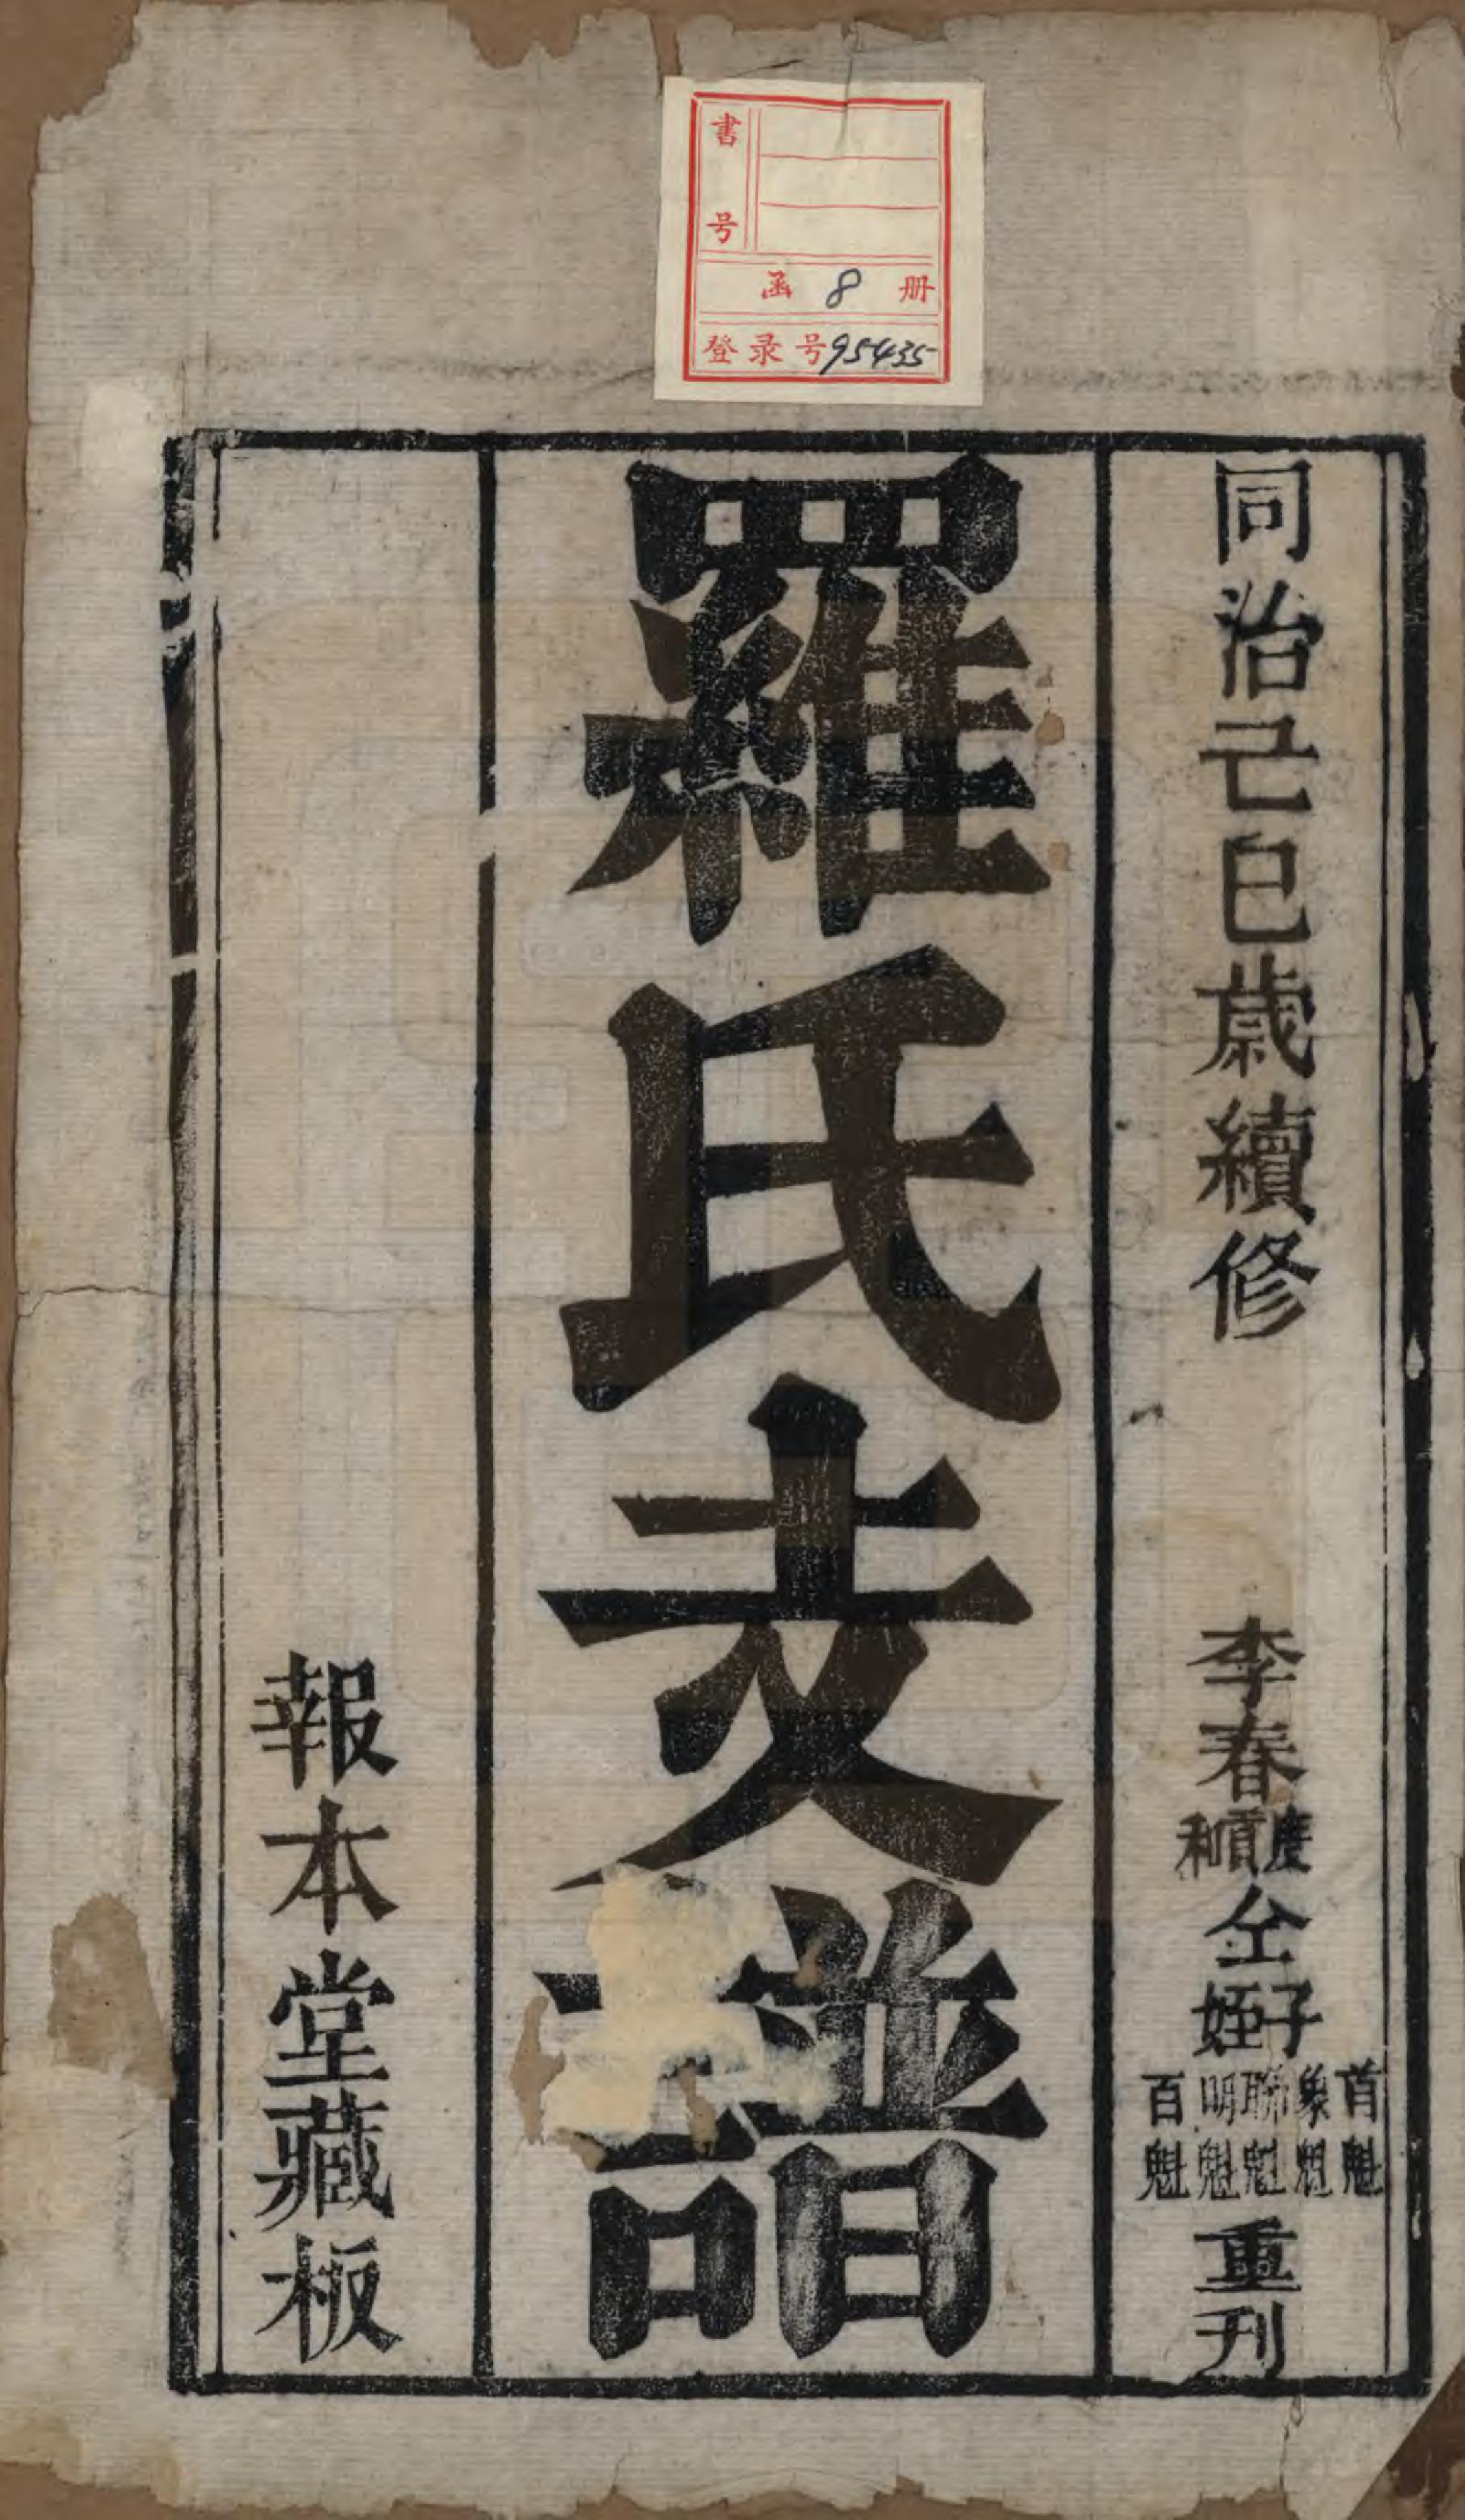 書号
函 8 册
登录号95435
同治己巳歲續修
李春
度貢和
仝
子姪
首魁
象魁
聯魁
明魁
百魁
重刊
羅氏支譜
報本堂藏板